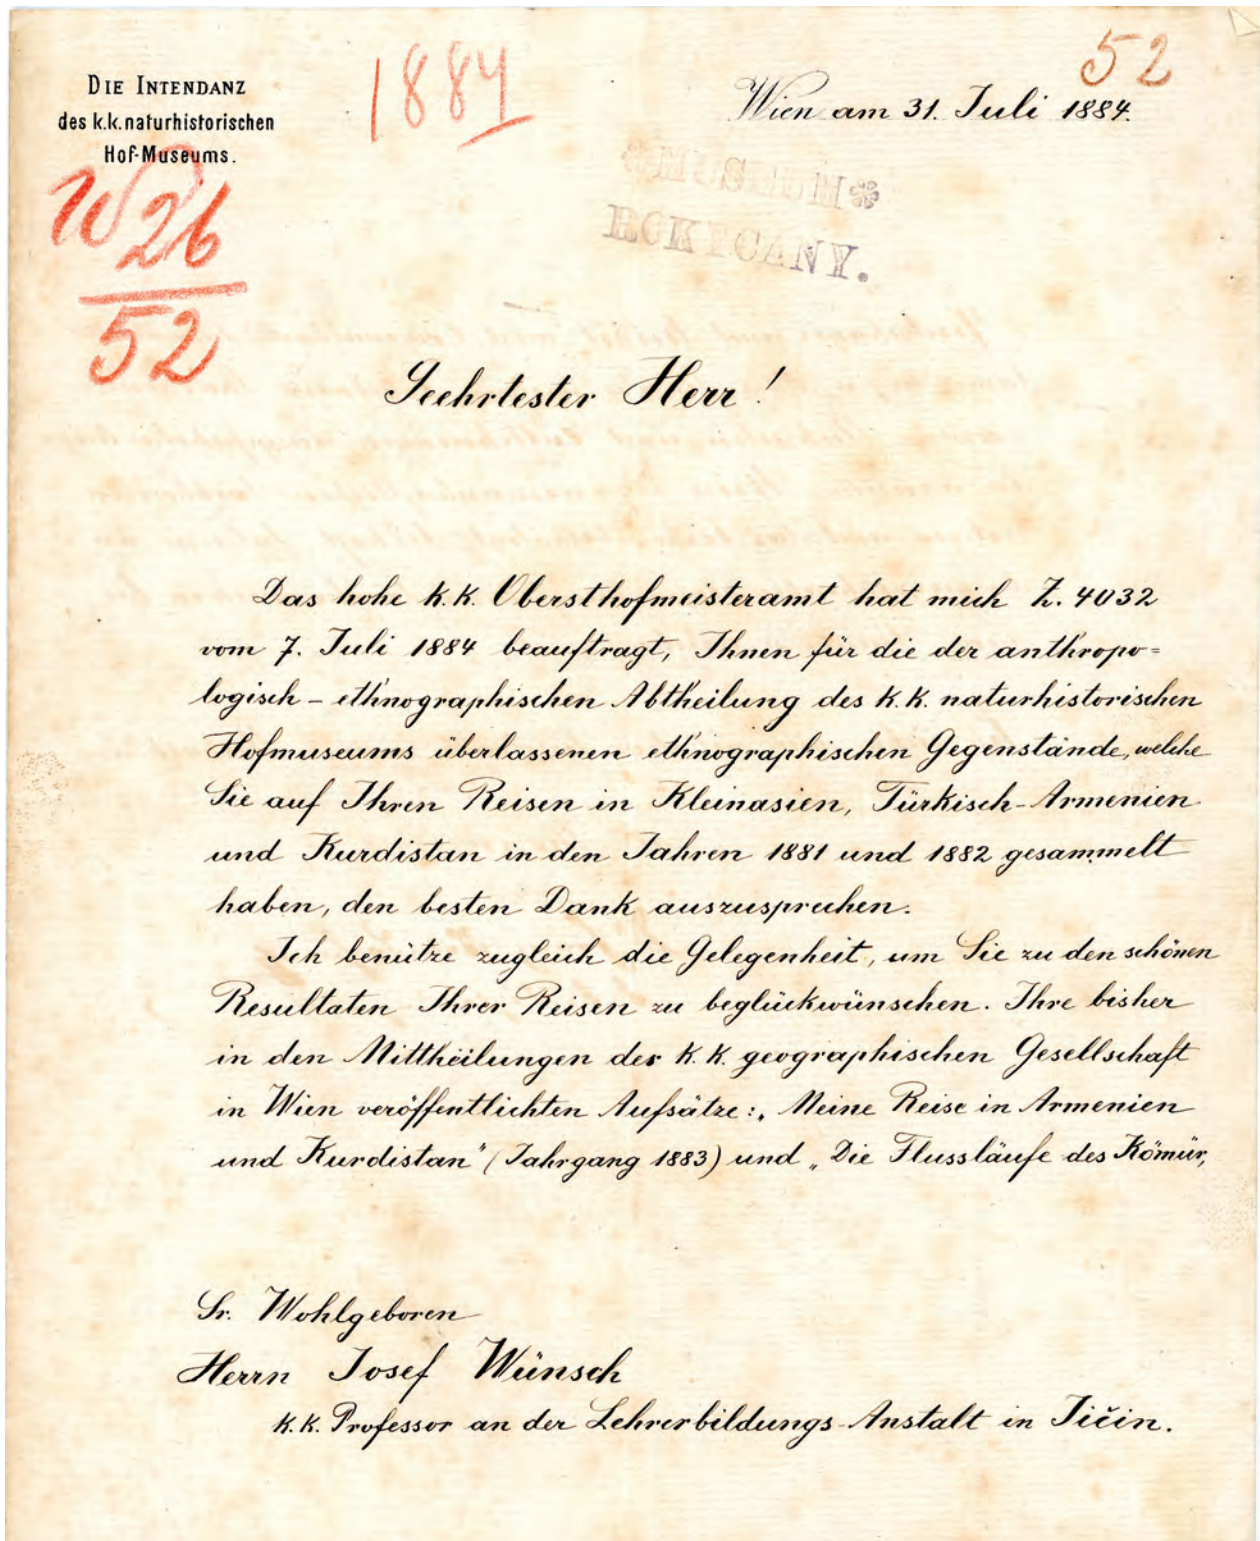 DIE INTENDANZ
des k.k. naturhistorischen
Hof-Museums.
1884
52
Wien am 31. Juli 1884.
W 26
52
MUSEUM
ROKYCANY.
Geehrtester Herr!
Das hohe k.k. Obersthofmeisteramt hat mich Z. 4032
vom 7. Juli 1884 beauftragt, Ihnen für die der anthropo=
logisch - ethnographischen Abtheilung des k.k. naturhistorischen
Hofmuseums überlassenen ethnographischen Gegenstände, welche
Sie auf Ihren Reisen in Kleinasien, Türkisch-Armenien
und Kurdistan in den Jahren 1881 und 1882 gesammelt
haben, den besten Dank auszusprechen.
Ich benütze zugleich die Gelegenheit, um Sie zu den schönen
Resultaten Ihrer Reisen zu beglückwünschen. Ihre bisher
in den Mittheilungen der k.k. geographischen Gesellschaft
in Wien veröffentlichten Aufsätze: „Meine Reise in Armenien
und Kurdistan" (Jahrgang 1883) und „Die Flussläufe des Kömür,
Sr. Wohlgeboren
Herrn Josef Wünsch
k.k. Professor an der Lehrerbildungs-Anstalt in Jičin.